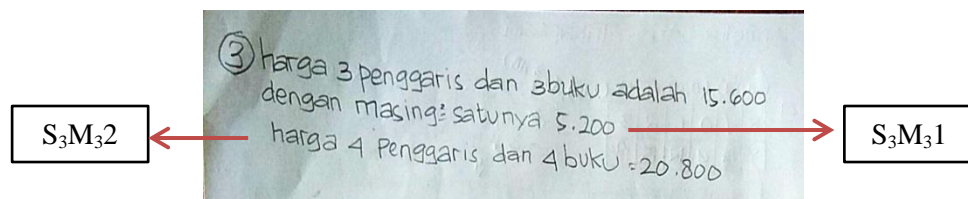 ③ harga 3 penggaris dan 3 buku adalah 15.600
dengan masing² satunya 5.200
harga 4 Penggaris dan 4 buku = 20.800
S₃M₃2
S₃M₃1